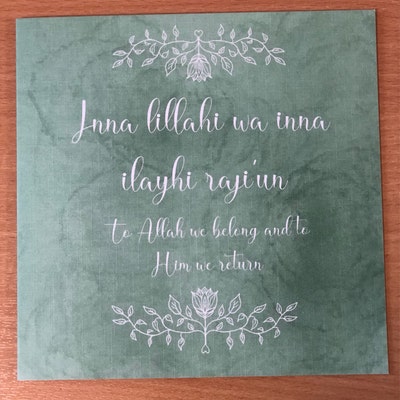 Inna lillahi wa inna
ilayhi raji'un
to Allah we belong and to
Him we return